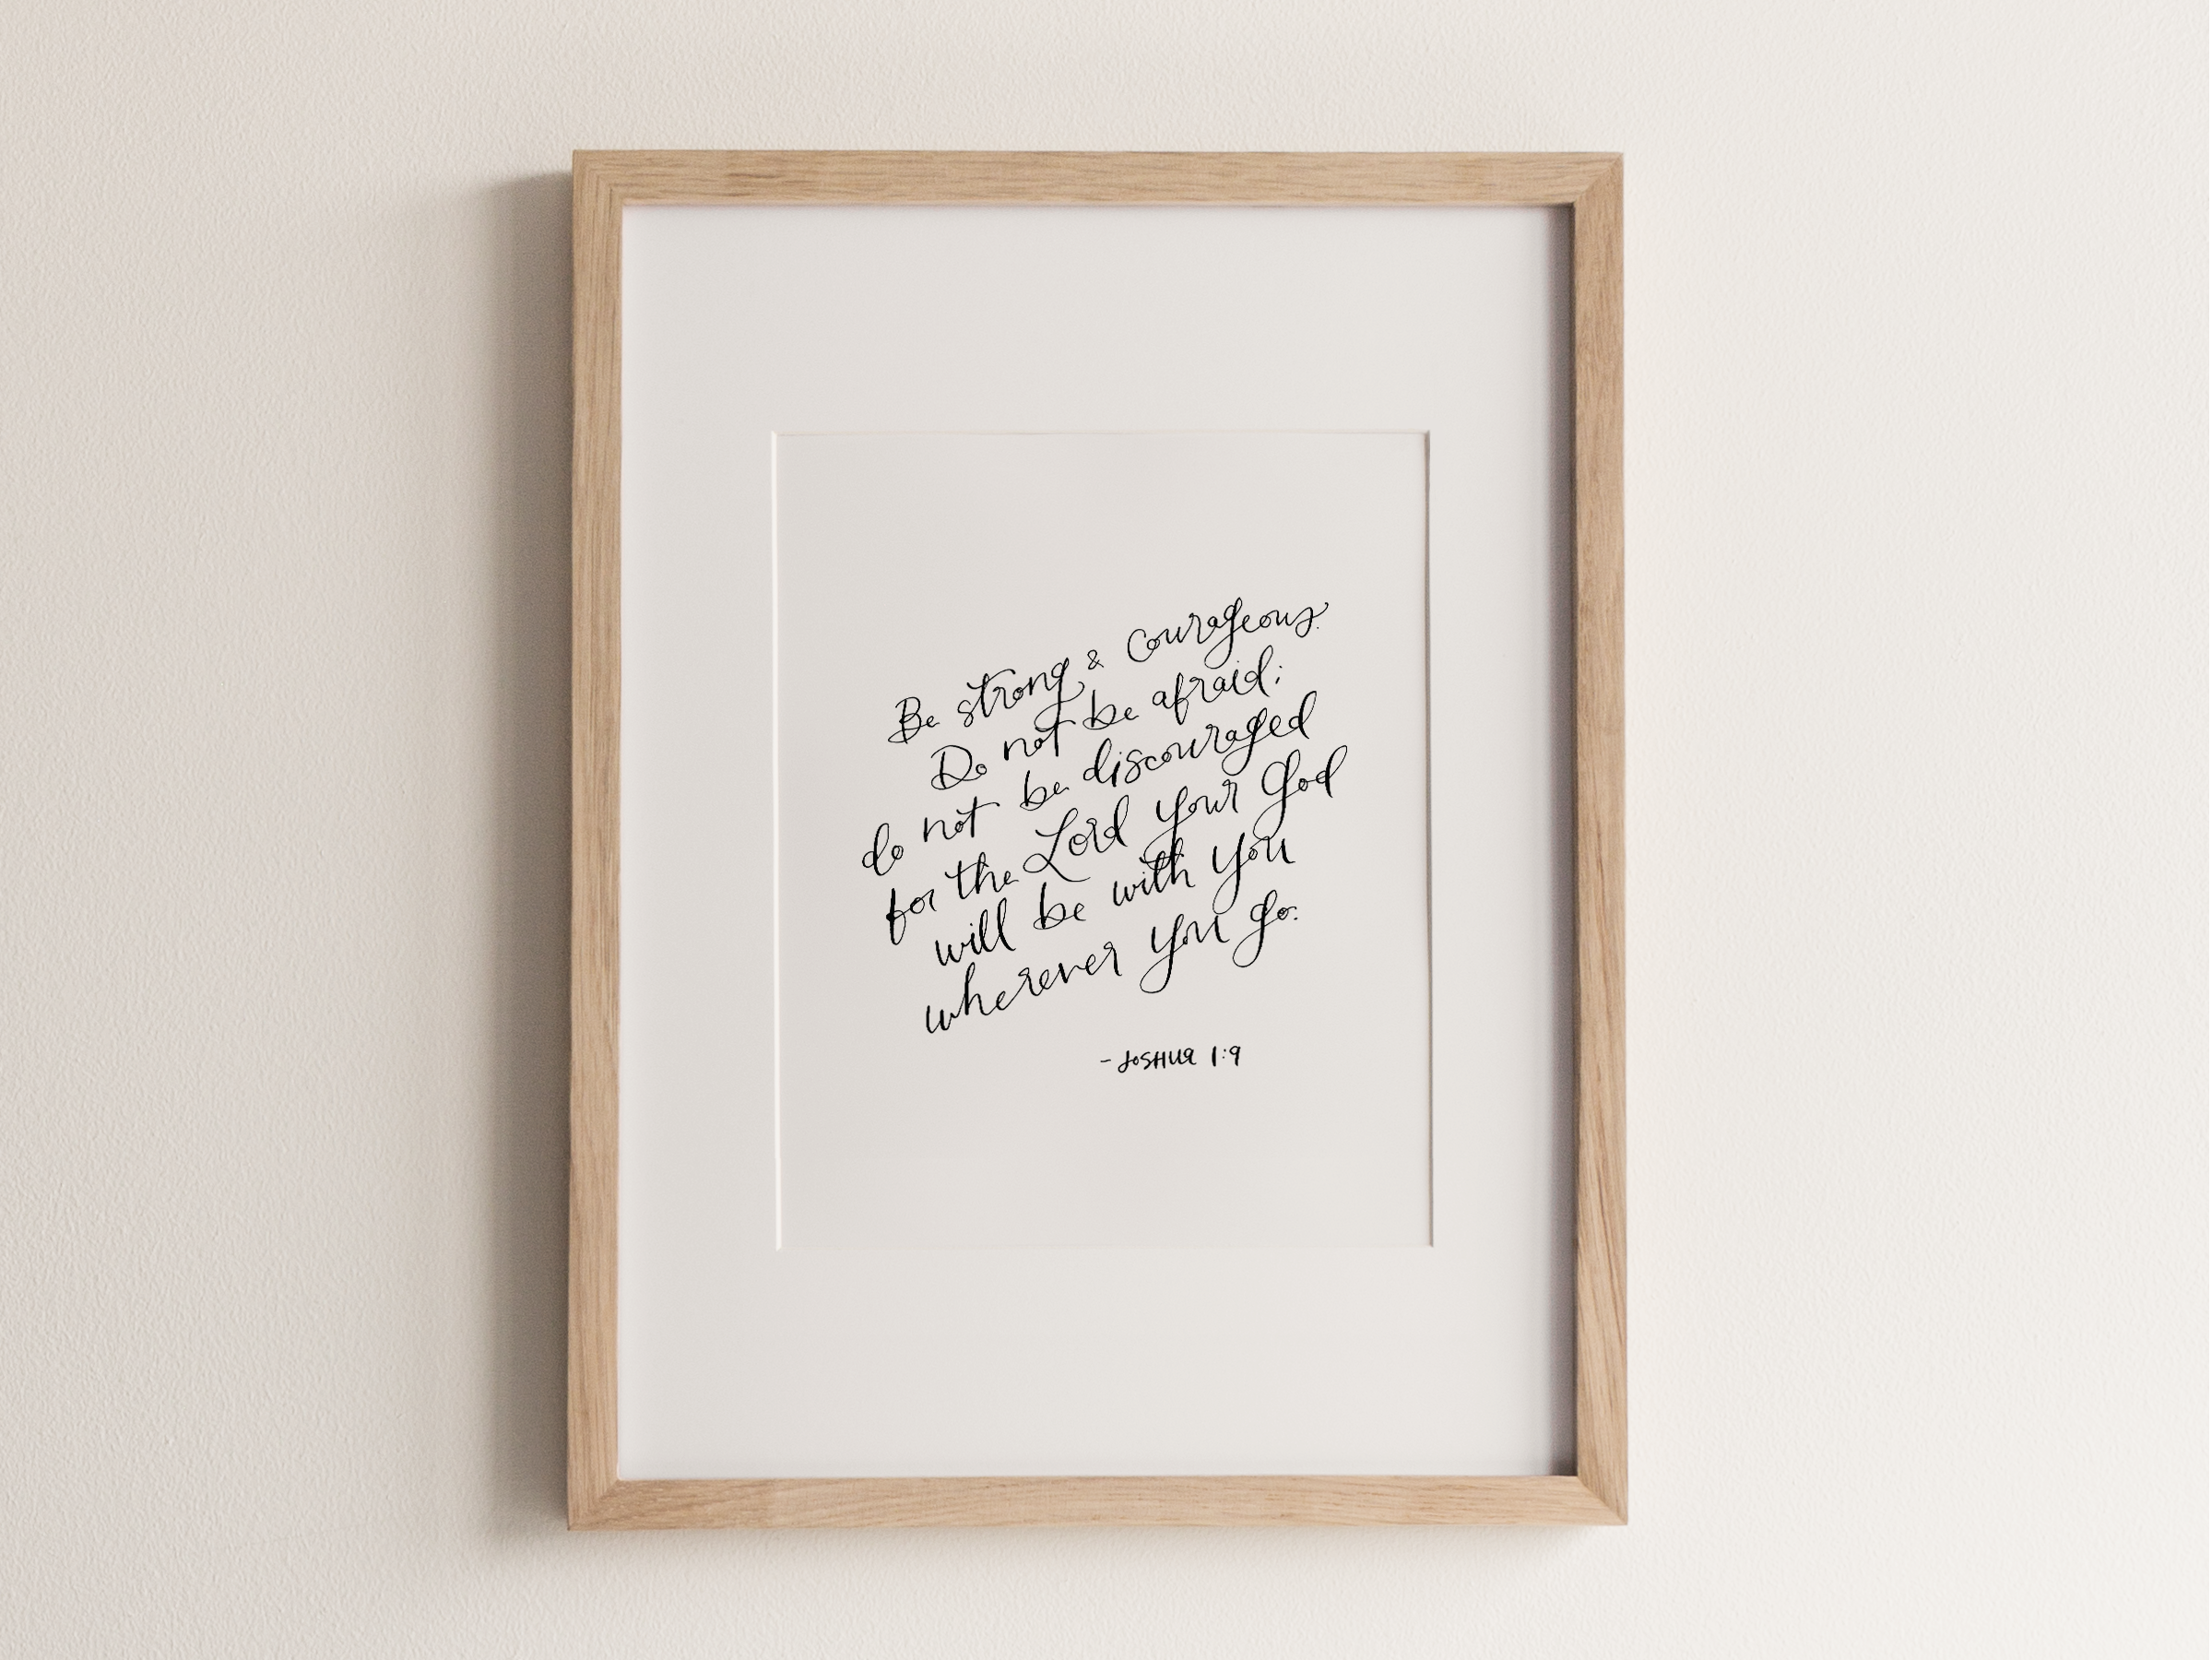 Be strong & courageous.
Do not be afraid;
do not be discouraged
for the Lord your God
will be with you
wherever you go.
- JOSHUA 1:9